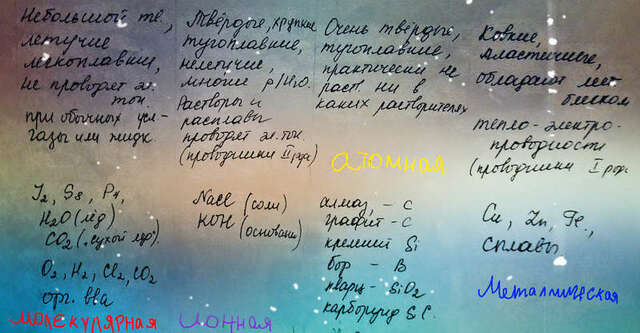 Небольшой тв.,
летучие
легкоплавкие,
не проводят эл.
ток.
при обычных усл-
газы или жидк.
I₂, S₈, P₄,
H₂O (лёд)
CO₂ (сухой лёд).
O₂, H₂, Cl₂, CO₂
орг. вва
МОЛЕКУЛЯРНАЯ
Твёрдые, хрупкие
тугоплавкие,
нелетучие,
многие р/H₂O.
Растворы и
расплавы
проводят эл. ток.
(проводники II рода)
NaCl (соли)
KOH (основания)
ИОННАЯ
Очень твёрдые,
тугоплавкие,
практически не
раст. ни в
каких растворителях
АТОМНАЯ
алмаз - C
графит - C
кремний Si
бор - B
кварц - SiO₂
карборунд SiC.
Ковкие,
пластичные,
обладают мет.
блеском
тепло-электро-
проводность
(проводники I рода
Cu, Zn, Fe.,
сплавы
Металлическая